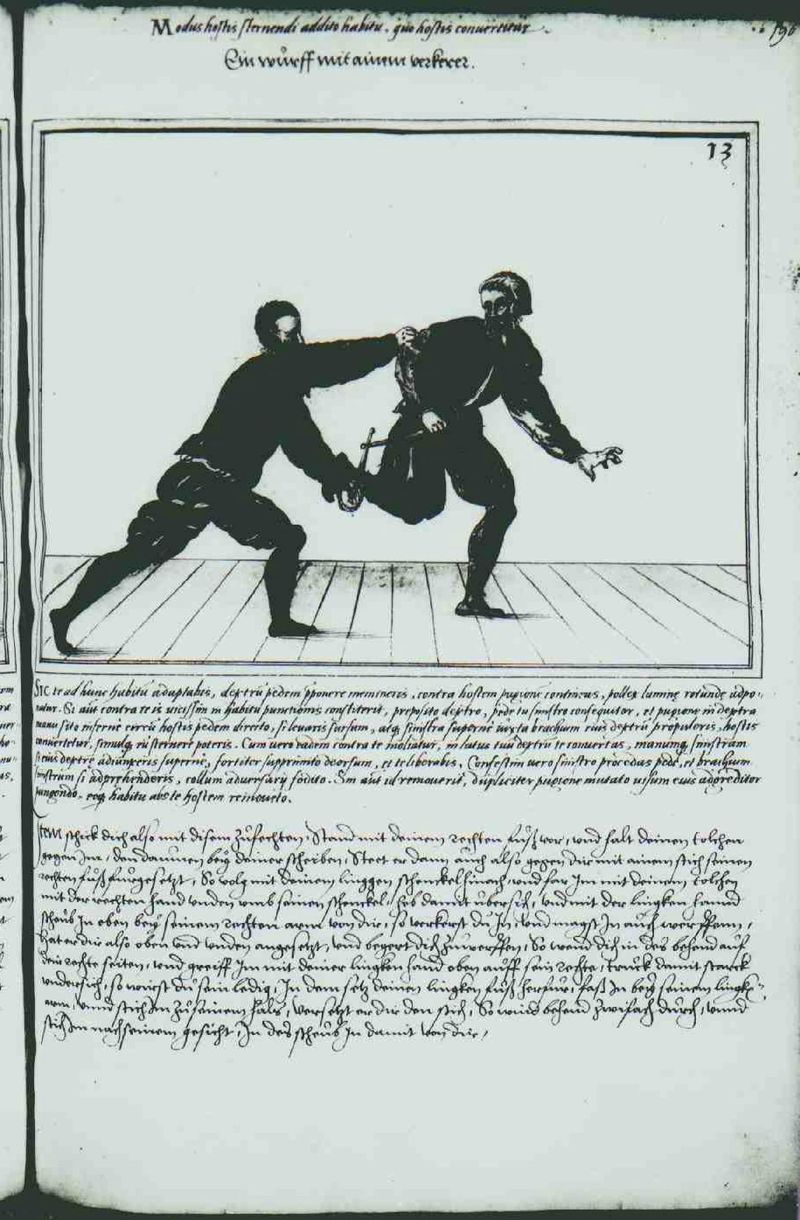 Modus hostis sternendi addito habitu, quo hostis convertitur.
196
Ein wůrff mit ainem verkerer.
13
Sic te ad hunc habitu adaptabis, dextrū pedem pponere memineris, contra hostem pugione continens, pollex lamine rotundę adpo-
natur. Si aut contra te is vicissim in habitu punctionis constiterit, preposito dextro, pede tu sinistro consequitor, et pugione in dextra
manu sito infernè circū hostis pedem directo, si levaris sursum, atq, sinistra supernè iuxta brachium eius dextrū propuleris, hostis
convertetur, simulq, eū sternere poteris. Cum vero eadem contra te moliatur, in latus tuū dextrū te convertas, manumq, sinistram
eius dextrę adiunxeris supernè, fortiter supprimito deorsum, et te liberabis. Confestim vero sinistro procedas pede, et brachium
sinistrum si adprehenderis, collum adversarij fodito. Sin aut id removerit, dupliciter pugione mutato visum eius adgreditor
pungendo, eoq, habitu abs te hostem removeto.
Item schick dich also mit disem zůfechten, Stand mit deinem rechten fuß vor, und halt deinen tolchen
gegen Im, den daumen beÿ deiner scheiben, Steet er dann auch also gegen dir mit ainem stich seinen
rechten fuß fürgesetzt, So volg mit deinem linggen schenckel hinach, und far Im mit deinem tolchen
mit der rechten hand unden umb seinen schenckel, heb damit übersich, und mit der lingken hannd
scheub In oben beÿ seinem rechten arm von dir, so verkerst du In, und magst In auch werffenn,
hat er dir also oben und unden angesetzt, und begert dich zuwerffen, So wend dich in des behend auf
dein rechte seiten, und greiff Im mit deiner lingken hand oben auff sein rechte, truck damit starck
undersich, so wirst du sein ledig, In dem setz deinen lingken fuß herfur, faß In beÿ seinem lingken
arm, unnd stich Im zu seinem hals, versetzt er dir den stich, So wind behend zwifach durch, unnd
stich Im nach seinem gesicht, In des scheub In damit von dir,